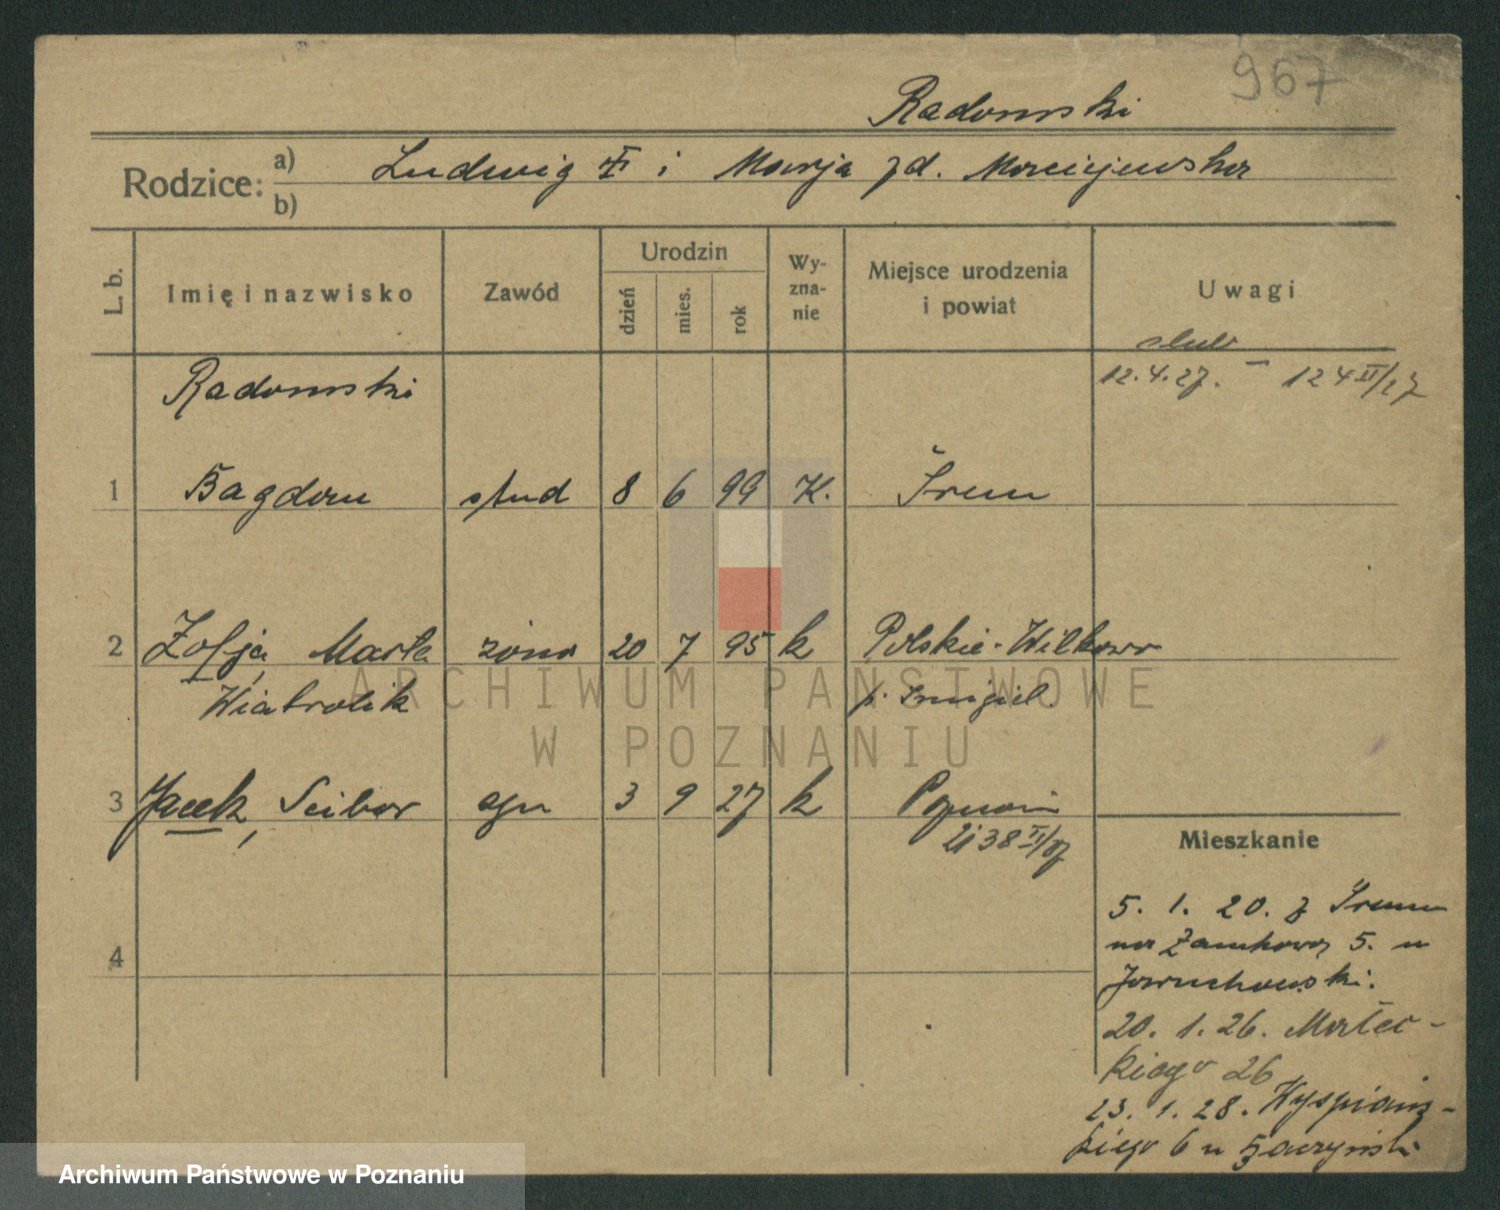 967
Radomski
Rodzice: a) Ludwig † i Marja zd. Maciejewska
b)
L. b. Imię i nazwisko Zawód Urodzin dzień mies. rok Wy-zna-nie Miejsce urodzenia i powiat Uwagi
ślub
Radomski 12.4.27. – 124 II/27
1 Bogdan stud 8 6 99 K. Śrem
2 Zofja, Marta żona 20 7 95 k Polskie-Wilkowo
Wiatrolik p. Śmigiel.
3 Jacek, Ścibor syn 3 9 27 k Poznań
38 II/27
Mieszkanie
4
5. 1. 20. z Śremu
na Zamkową 5. u
Jaruchowski.
20. 1. 26. Małec-
kiego 26
23. 1. 28. Wyspiańs-
kiego 6 u
ARCHIWUM PAŃSTWOWE
W POZNANIU
Archiwum Państwowe w Poznaniu